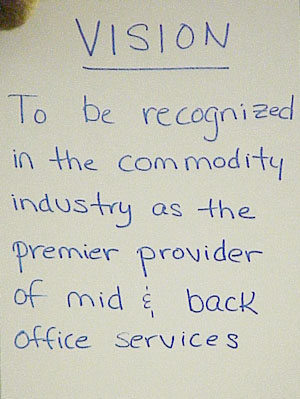 VISION
To be recognized
in the commodity
industry as the
premier provider
of mid & back
office services